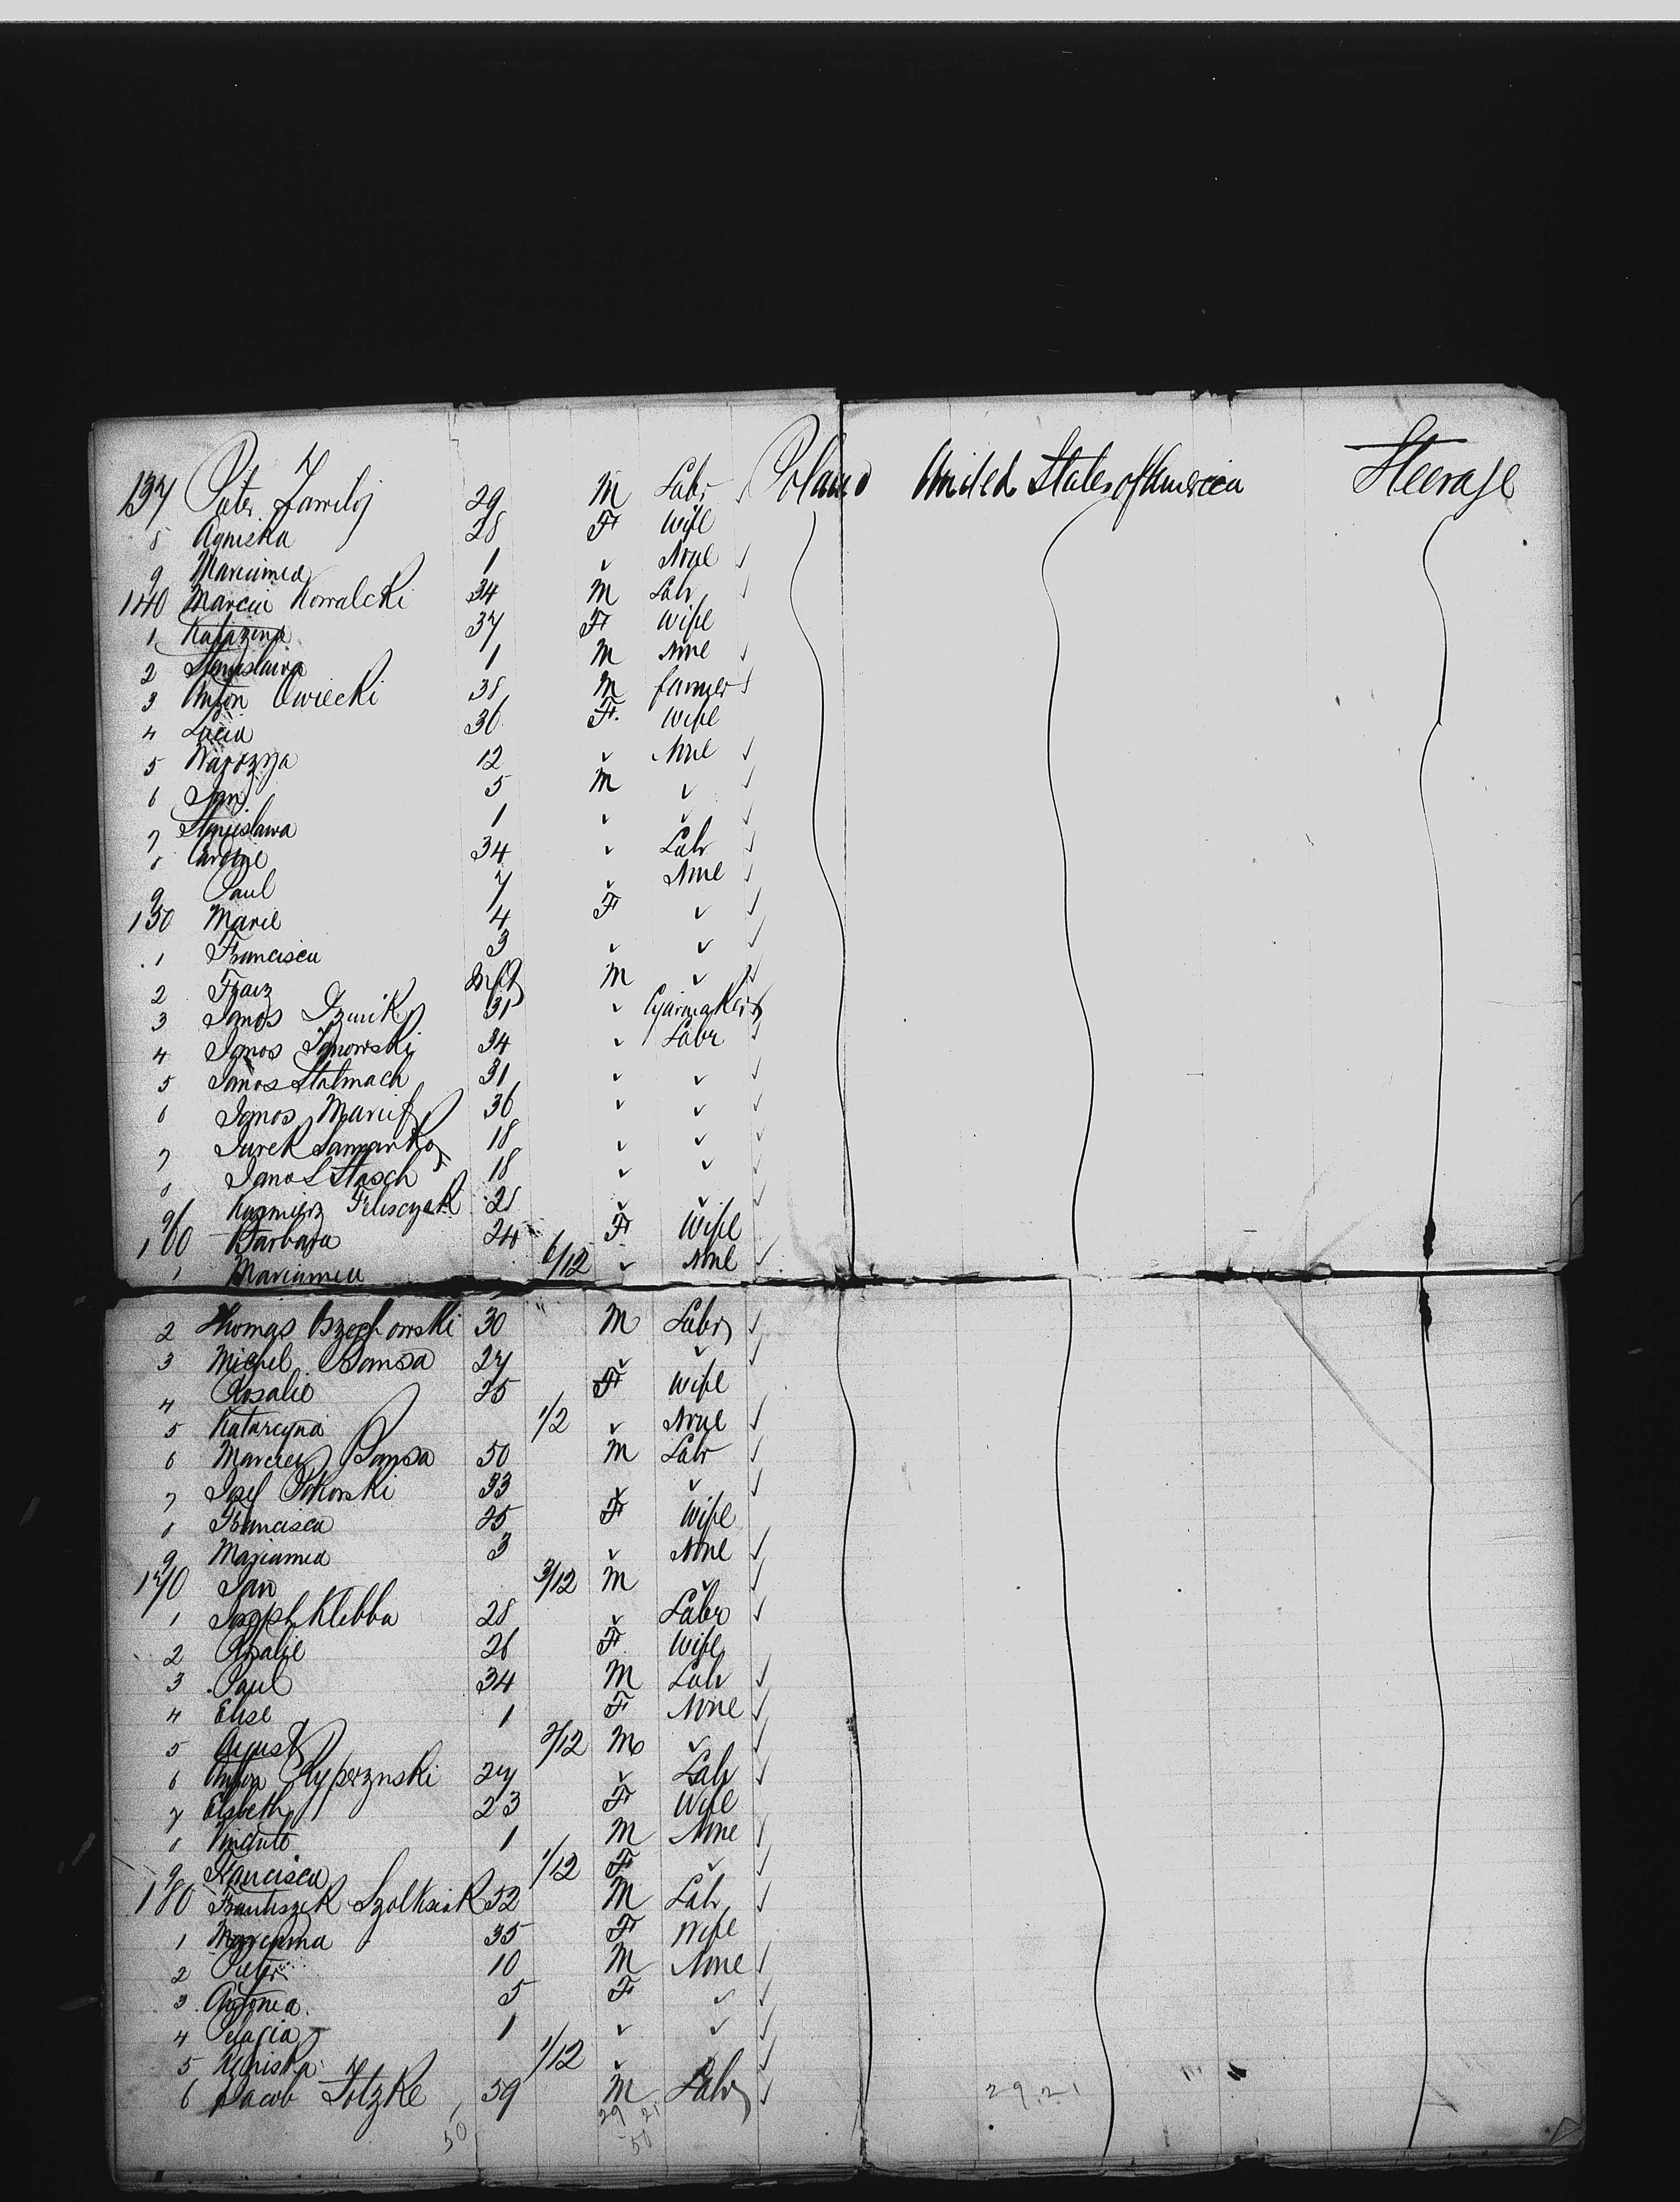 137 Peter 29 M Labr Poland United States of America Steerage
8 Agniska 28 F Wife
9 Marianna 1 " None
140 Marcin Kowalcki 34 M Labr
1 Katazina 37 F Wife
2 Stanislawa 1 M None
3 Anton Cwiecki 38 M farmer
4 Lucia 36 F Wife
5 12 " None
6 Jan 5 M "
7 Stanislawa 1 " "
8 34 " Labr
9 Paul 7 " None
150 Marie 4 F "
1 Francisca 3 " "
2 Franz Inft M "
3 Janos 31 " Cigarmaker
4 Janos Janowski 34 " Labr
5 Janos Stalmach 31 " "
6 Janos 36 " "
7 Jurek 18 " "
8 Janos Stasch 18 " "
9 Kazmierz Feliscyak 28 " "
160 Barbara 24 F Wife
1 Marianna 6/12 " None
2 Thomas Orzechowski 30 M Labr
3 Michel Bamsa 27 " "
4 Rosalie 25 F Wife
5 Katarcyna 1/2 " None
6 Bamsa 50 M Labr
7 Josef Pokorski 33 " "
8 Francisca 25 F Wife
9 Marianna 3 " None
170 Jan 3/12 M "
1 Joseph Klebba 28 " Labr
2 Rosalie 26 F Wife
3 Paul 34 M Labr
4 Elise 1 F None
5 August 2/12 M "
6 Anton 27 " Labr
7 Elsbeth 23 F Wife
8 1 M None
9 Francisca 1/12 F "
180 Frantiszek 52 M Labr
1 Marianna 35 F Wife
2 Peter 10 M None
3 Antonia 5 F "
4 Pelagia 1 " "
5 1/12 "
6 Jacob Totzke 59 M Labr
29 21
50 50
29.21